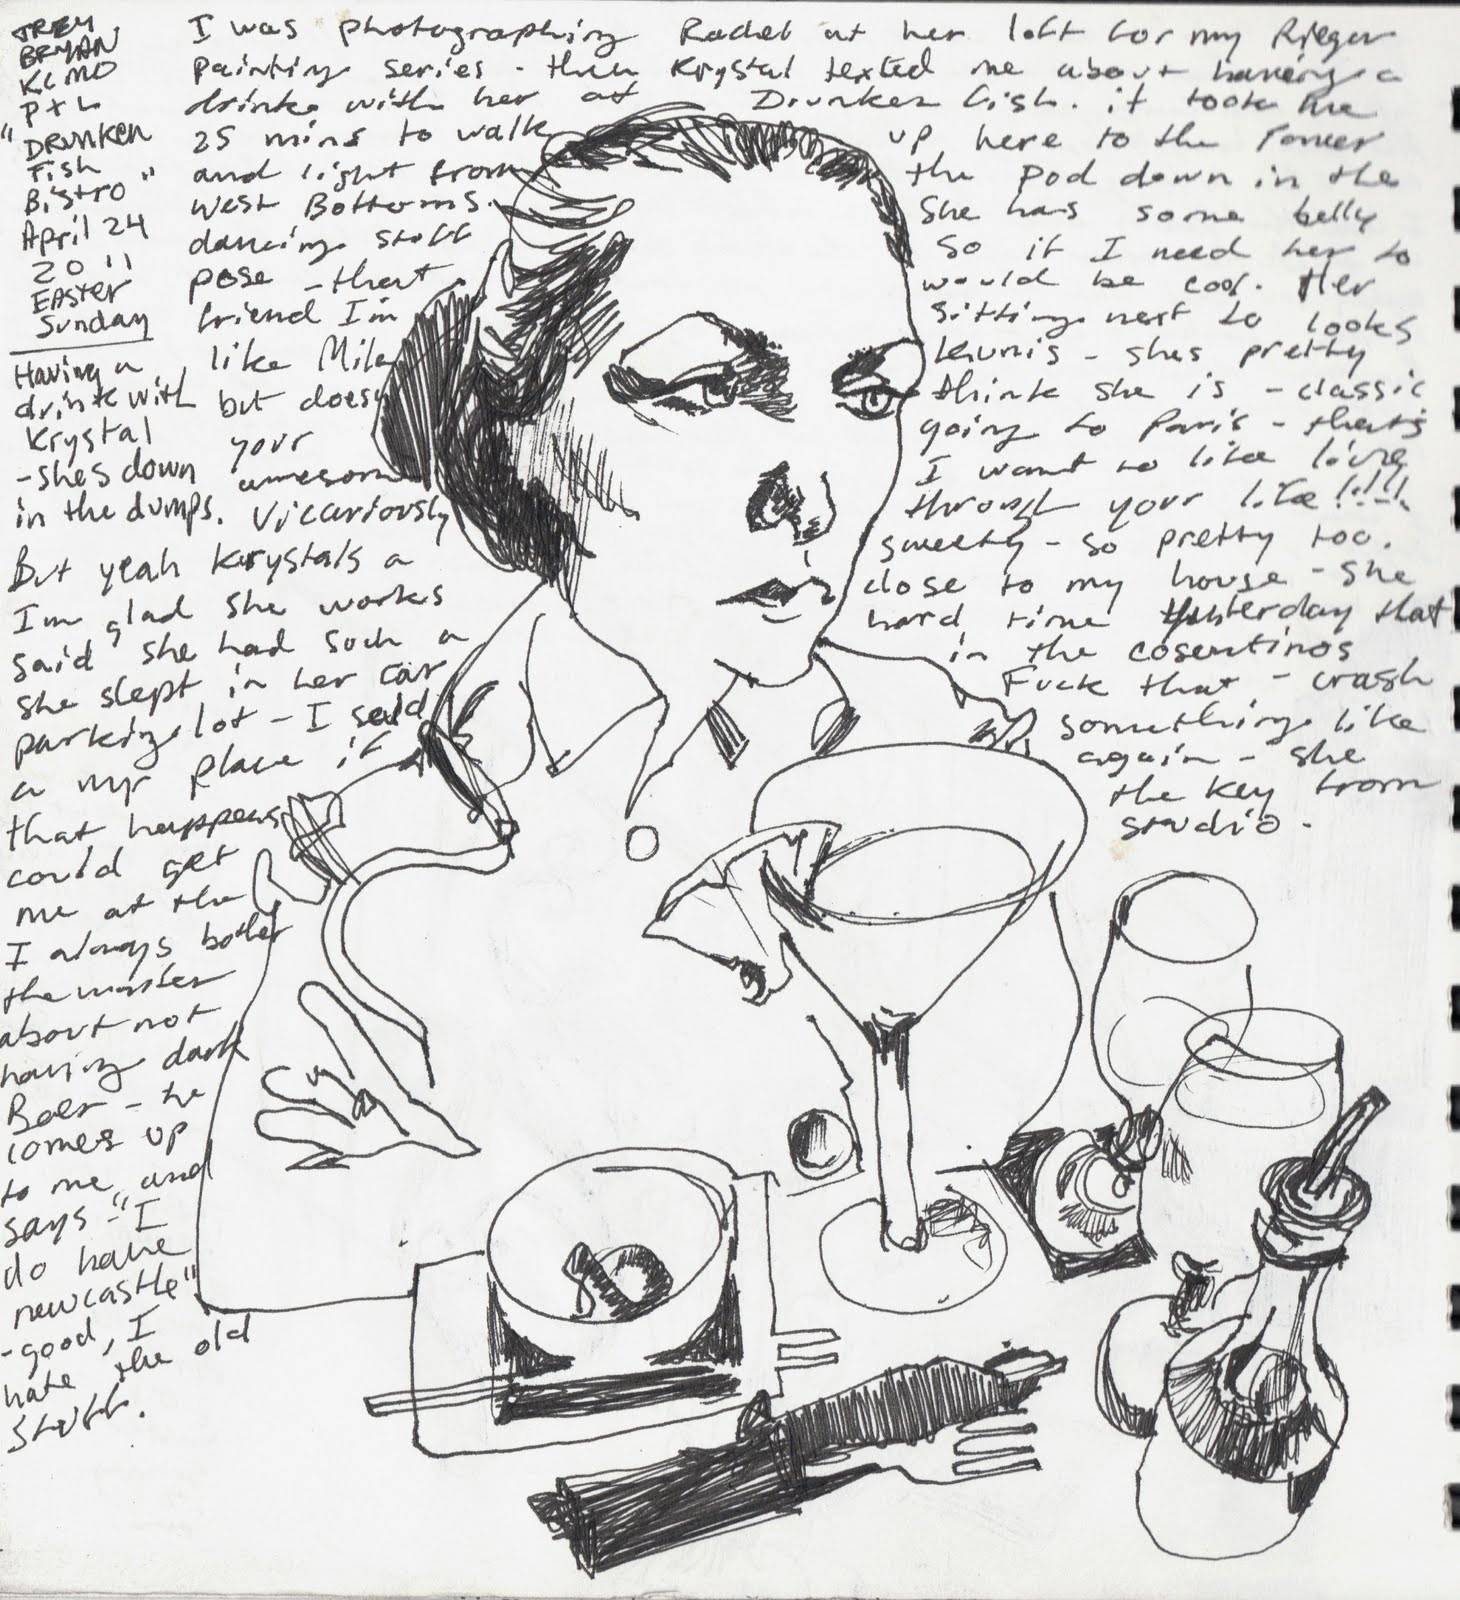 TREY
BRYAN
KCMO
P+L
"DRUNKEN
Fish
Bistro"
April 24
2011
EASTER
Sunday
Having a
drink with
Krystal
- shes down
in the dumps.
I was photographing Rachel at her loft for my Rieger
painting series - then Krystal texted me about having a
drink with her at Drunken fish. it took me
25 mins to walk up here to the Power
and light from the Pod down in the
West Bottoms. She has some belly
dancing stuff so if I need her to
pose - that would be cool. Her
friend I'm sitting next to looks
like Mila Kunis - shes pretty
but doesn't think she is - classic
your going to Paris - thats
awesome I want to like live
Vicariously through your life!!!!
But yeah Krystals a sweety - so pretty too.
I'm glad she works close to my house - she
said she had such a hard time Yesterday that
she slept in her car in the cosentinos
parking lot - I said Fuck that - crash
a my place if something like
that happens again - she
could get the key from
me at the studio.
I always bother
the waiter
about not
having dark
Beer - he
comes up
to me and
says - "I
do have
newcastle"
- good, I
hate the old
stuff.